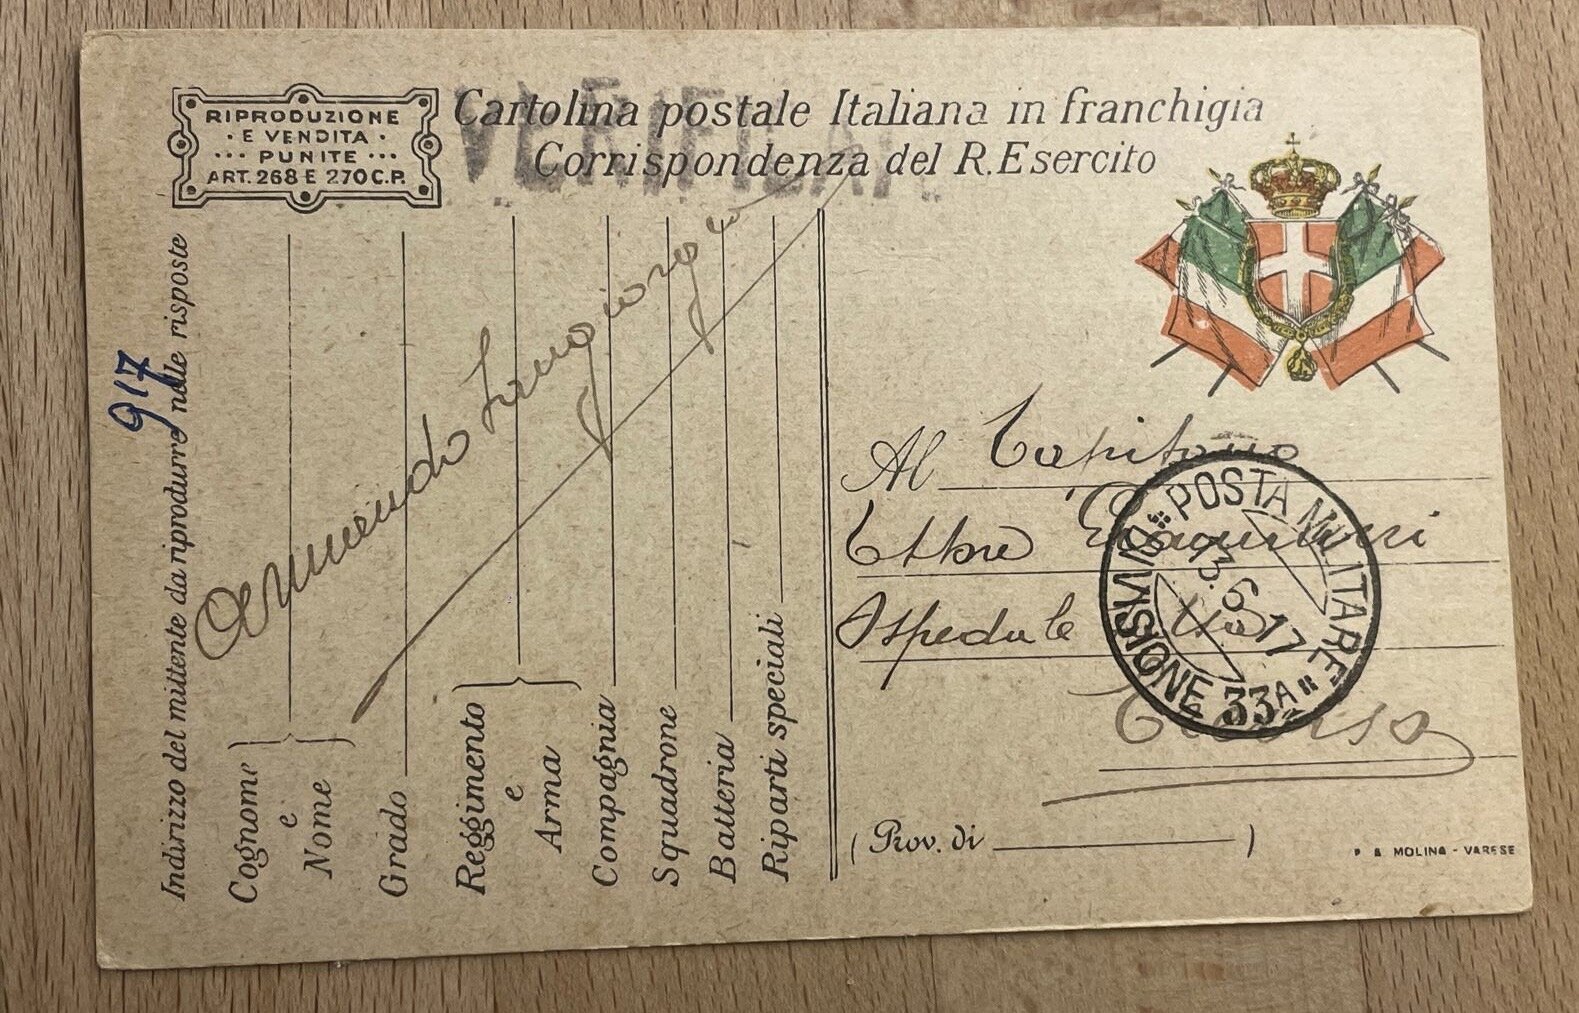 RIPRODUZIONE
· E VENDITA ·
··· PUNITE ···
ART. 268 E 270 C.P.
Cartolina postale Italiana in franchigia
Corrispondenza del R. Esercito
Indirizzo del mittente da riprodurre nelle risposte
917
Cognome
e
Nome
Grado
Reggimento
e
Arma
Compagnia
Squadrone
Batteria
Riparti speciali
Armando Sangiorgi
Al Capitano
Ettore
Ospedale
POSTA MILITARE
DIVISIONE 33A
13.6.17
(Prov. di )
MOLINA - VARESE